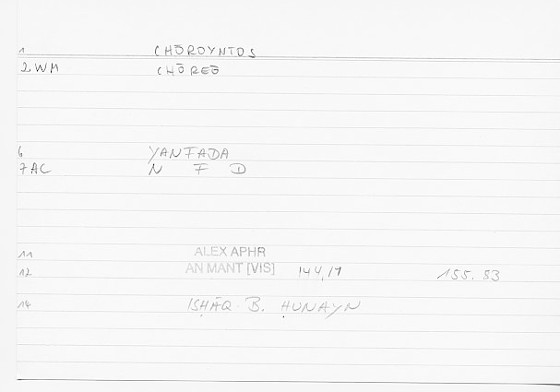 1 CHŌROYNTOS
2 WM CHŌREŌ
6 YANFADA
7 AC N F D
11 ALEX APHR
12 AN MANT [VIS] 144,17 155.83
14 ISḤĀQ B. ḤUNAYN